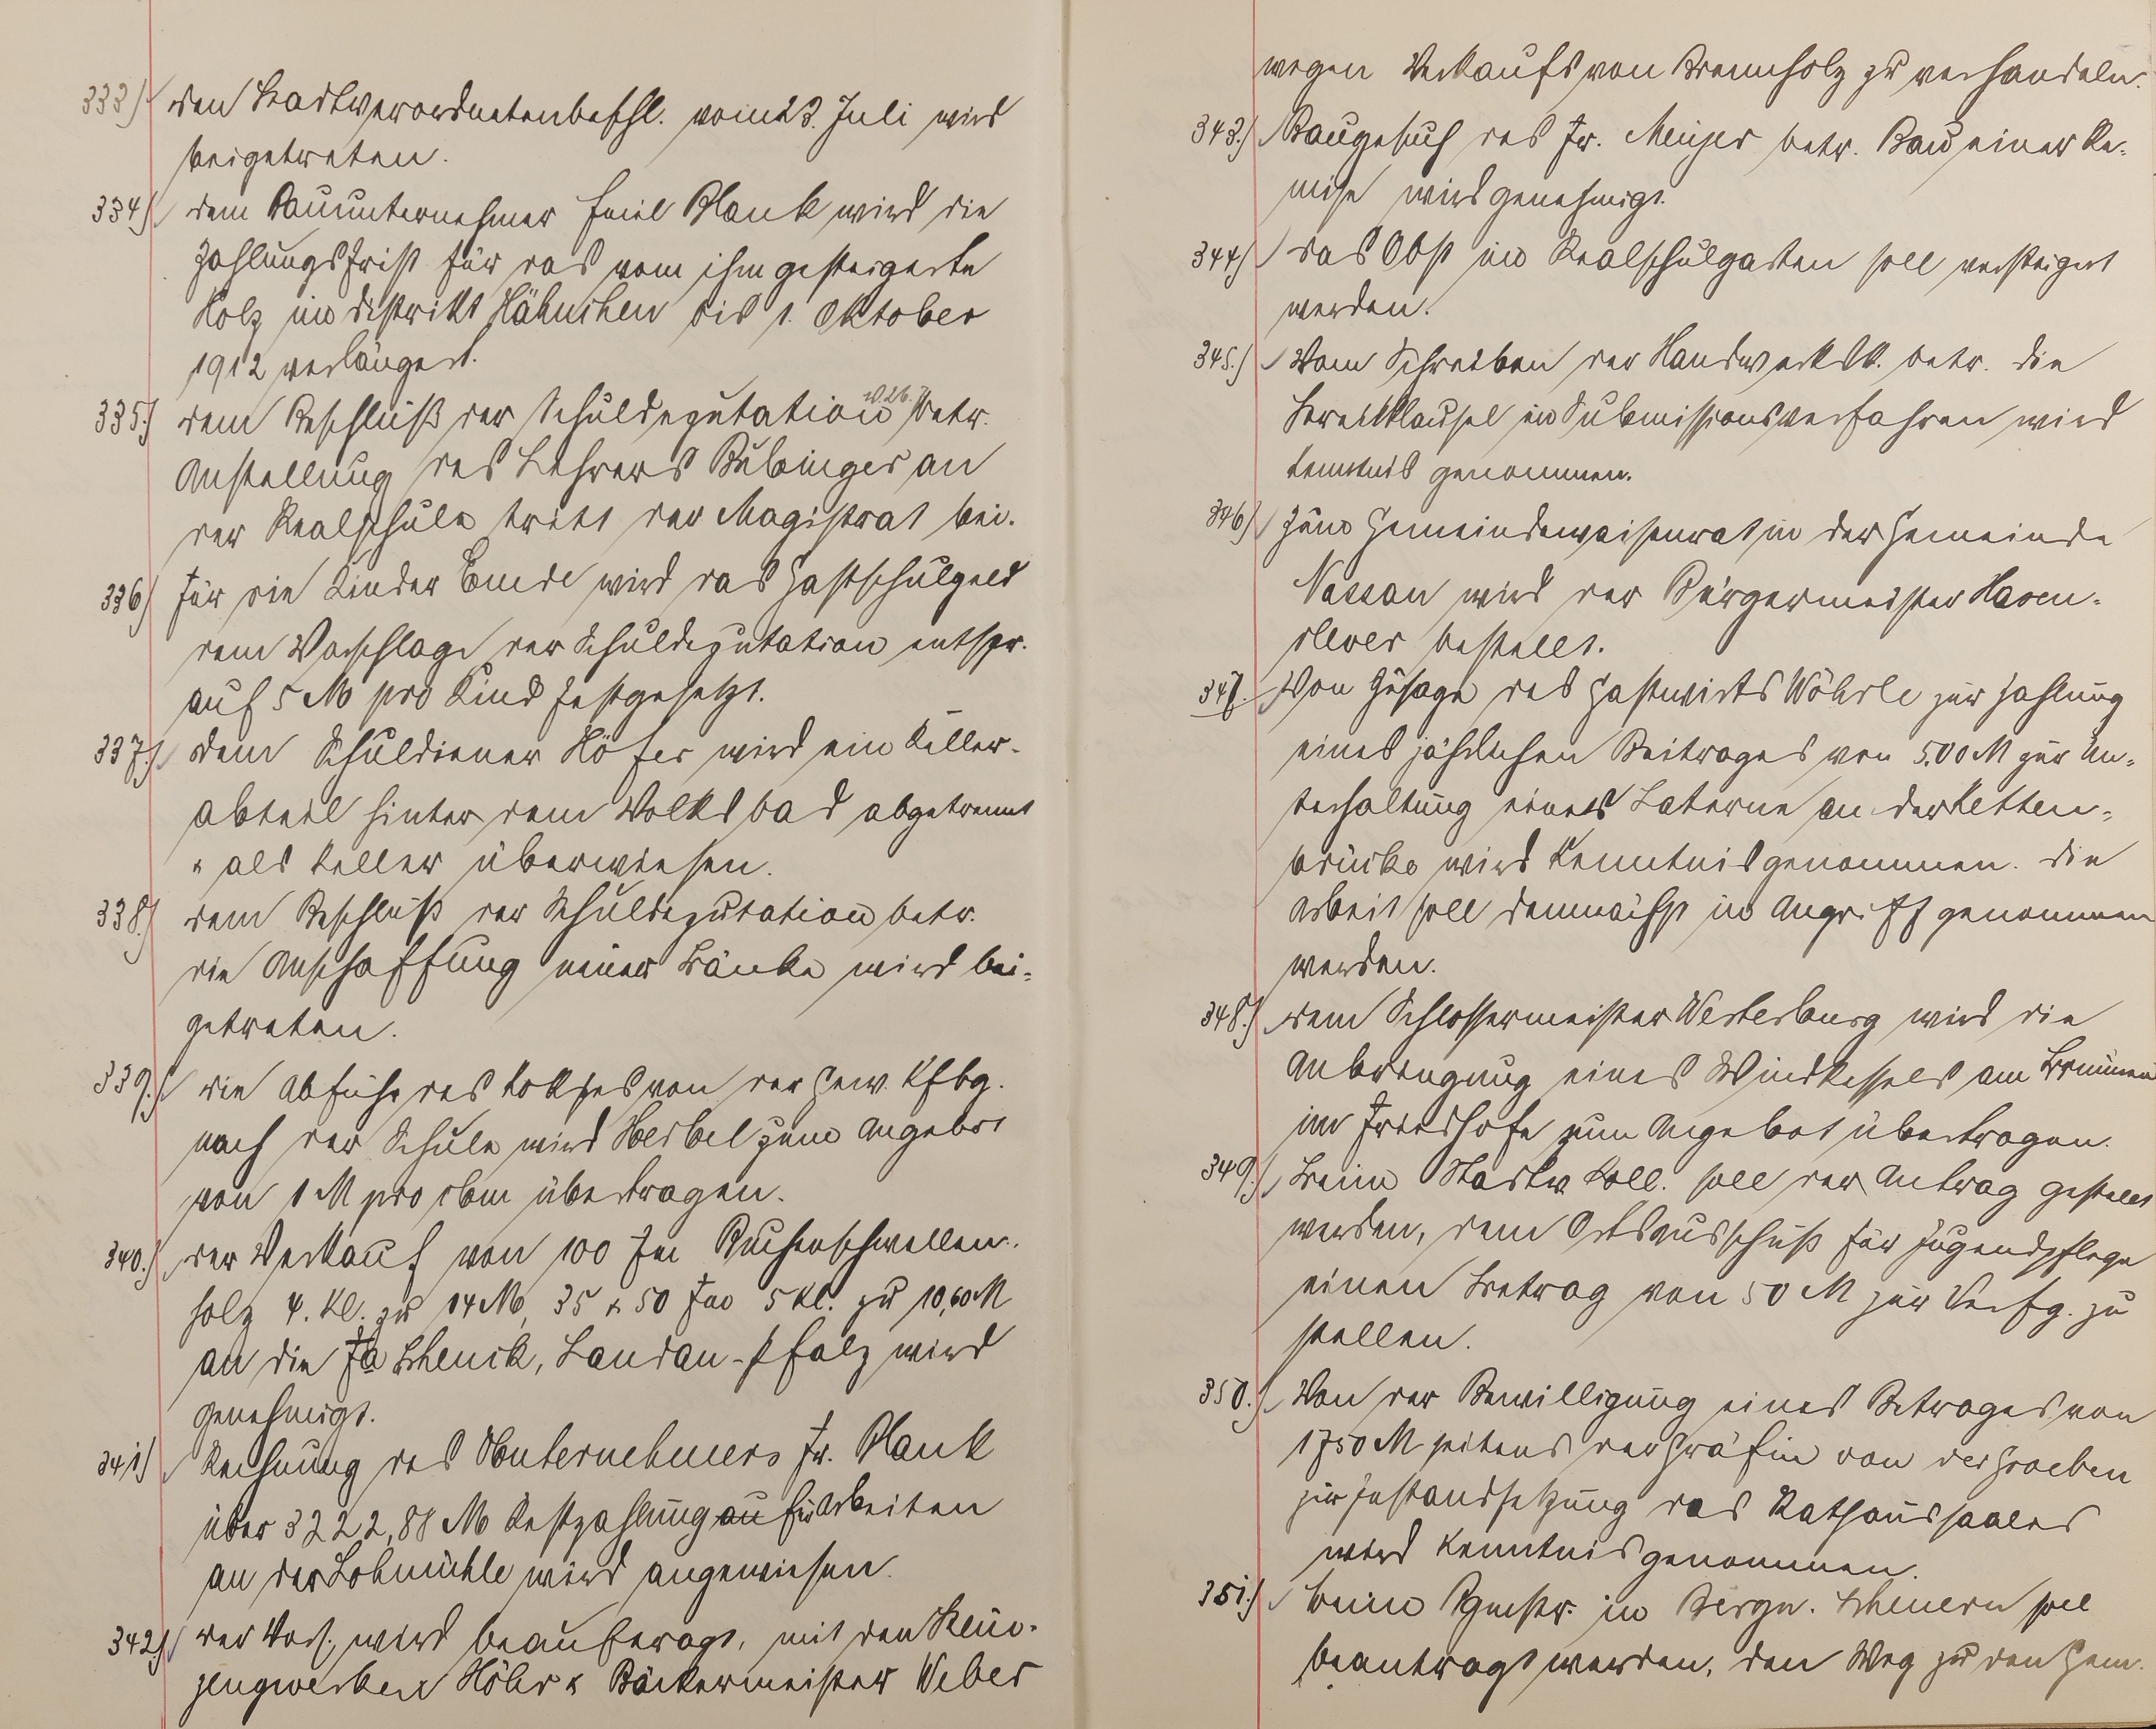 333.) Den Stadtverordnetenbeschl. vom 23. Juli wird
beigetreten.
334.) Dem Bauunternehmer Emil Blank wird die
Zahlungsfrist für das vom ihm gesteigerte
Holz im Distrikt Hähnchen bis 1. Oktober
1912 verlängert.
335.) Dem Beschluß der Schuldeputation v. 26. betr.
Anstellung des Lehrers Bubinger an
der Realschule tritt der Magistrat bei.
336.) Für die Kinder Emde wird das Gastschulgeld
dem Vorschlage der Schuldeputation entspr.
auf 5 M pro Kind festgesetzt.
337.) Dem Schuldiener Höfer wird ein Keller-
abteil hinter dem Volksbad abgetrennt
u als Keller überwiesen.
338.) Dem Beschluß der Schuldeputation betr.
die Anschaffung neuer Bänke wird bei-
getreten.
339.) Die Abfuhr des Kokses von der Gew. Kfbg.
nach der Schule wird Herbel zum Angebot
von 1 M pro cbm übertragen.
340.) Der Verkauf von 100 fm Buchenschwellen-
holz 4. Kl. zu 14 M, 35 u 50 fm 5 Kl. zu 10,60 M
an die Fa Schenck, Landau-Pfalz wird
genehmigt.
341.) Rechnung des Unternehmers Fr. Blank
über 3222,88 M Restzahlung an für Arbeiten
an der Lohmühle wird angewiesen.
342.) Der Vors. wird beauftragt, mit den
Höhr u Bäckermeister Weber
wegen Verkaufs von Brennholz zu verhandeln.
343.) Baugesuch des Fr. Meujer betr. Bau einer Re-
mise wird genehmigt.
344.) Das Obst im Realschulgarten soll versteigert
werden.
345.) Vom Schreiben der Handwerksk. betr. die
Streikklausel im Submissionsverfahren wird
Kenntnis genommen.
346.) Zum Gemeindewaisenrat in der Gemeinde
Nassau wird der Bürgermeister Hasen-
clever bestellt.
347. Von Zusage des Gastwirts Wöhrle zur Zahlung
eines jährlichen Beitrages von 5.00 M zur Un-
terhaltung einer Laterne an der Ketten-
brücke wird Kenntnis genommen. Die
Arbeit soll demnächst in Angriff genommen
werden.
348.) Dem Schlossermeister Westerburg wird die
Anbringung eines Windkessels am Brunnen
im Friedhofe zum Angebot übertragen.
349.) Beim Stadtv. Koll. soll der Antrag gestellt
werden, dem Ortsausschuß für Jugendpflege
einen Betrag von 50 M zur Verfg. zu
stellen.
350.) Von der Bewilligung eines Betrages von
1750 M seitens der Gräfin von der Groeben
zur Instandsetzung des Rathaussaales
wird Kenntnis genommen.
351.) Beim Bgmstr. in Bergn. Scheuern soll
beantragt werden, den Weg zu den Gem.